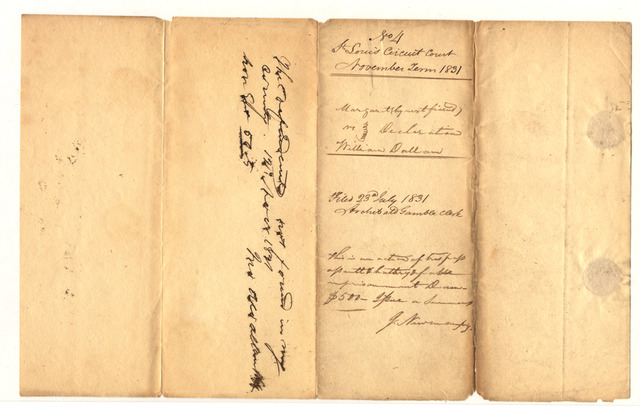 No 4
St Louis Circuit Court
November Term 1831
Margaret (by next friend)
vs Declaration
William Dallam
Filed 23rd July 1831
Archibald Gamble clerk
This is an action of trespass
assault & battery & false
imprisonment Dam
$500 Issue a Summons
The defendant not found in my
county. 1831